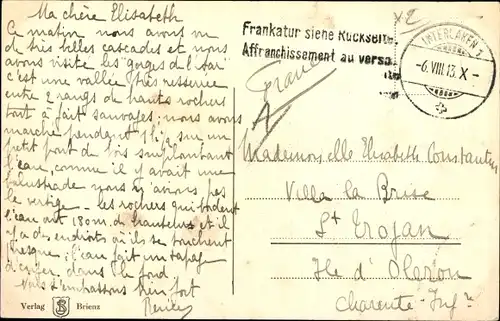 Ma chère Elisabeth
Ce matin nous avons vu
de très belles cascades et nous
avons visité les "gorges de l'Aar"
c'est une vallée très resserrée
entre 2 rangs de hauts rochers
tout à fait sauvages; nous avons
marché pendant 1h½ sur un
petit pont de bois surplombant
l'eau, comme il y avait une
balustrade nous n'avions pas
le vertige - les rochers qui bordent
l'eau ont 180m de hauteur et il
y a des endroits où ils se touchent
presque; l'eau fait un tapage
d'enfer, dans le fond
Nous t'embrassons bien fort
Verlag S Brienz
Frankatur siehe Rückseite.
Affranchissement au verso.
INTERLAKEN 1
-6.VIII.13.X-
France
Mademoiselle Elisabeth Constantin
Villa la Brise
St Trojan
Ile d'Oleron
Charente-Infre